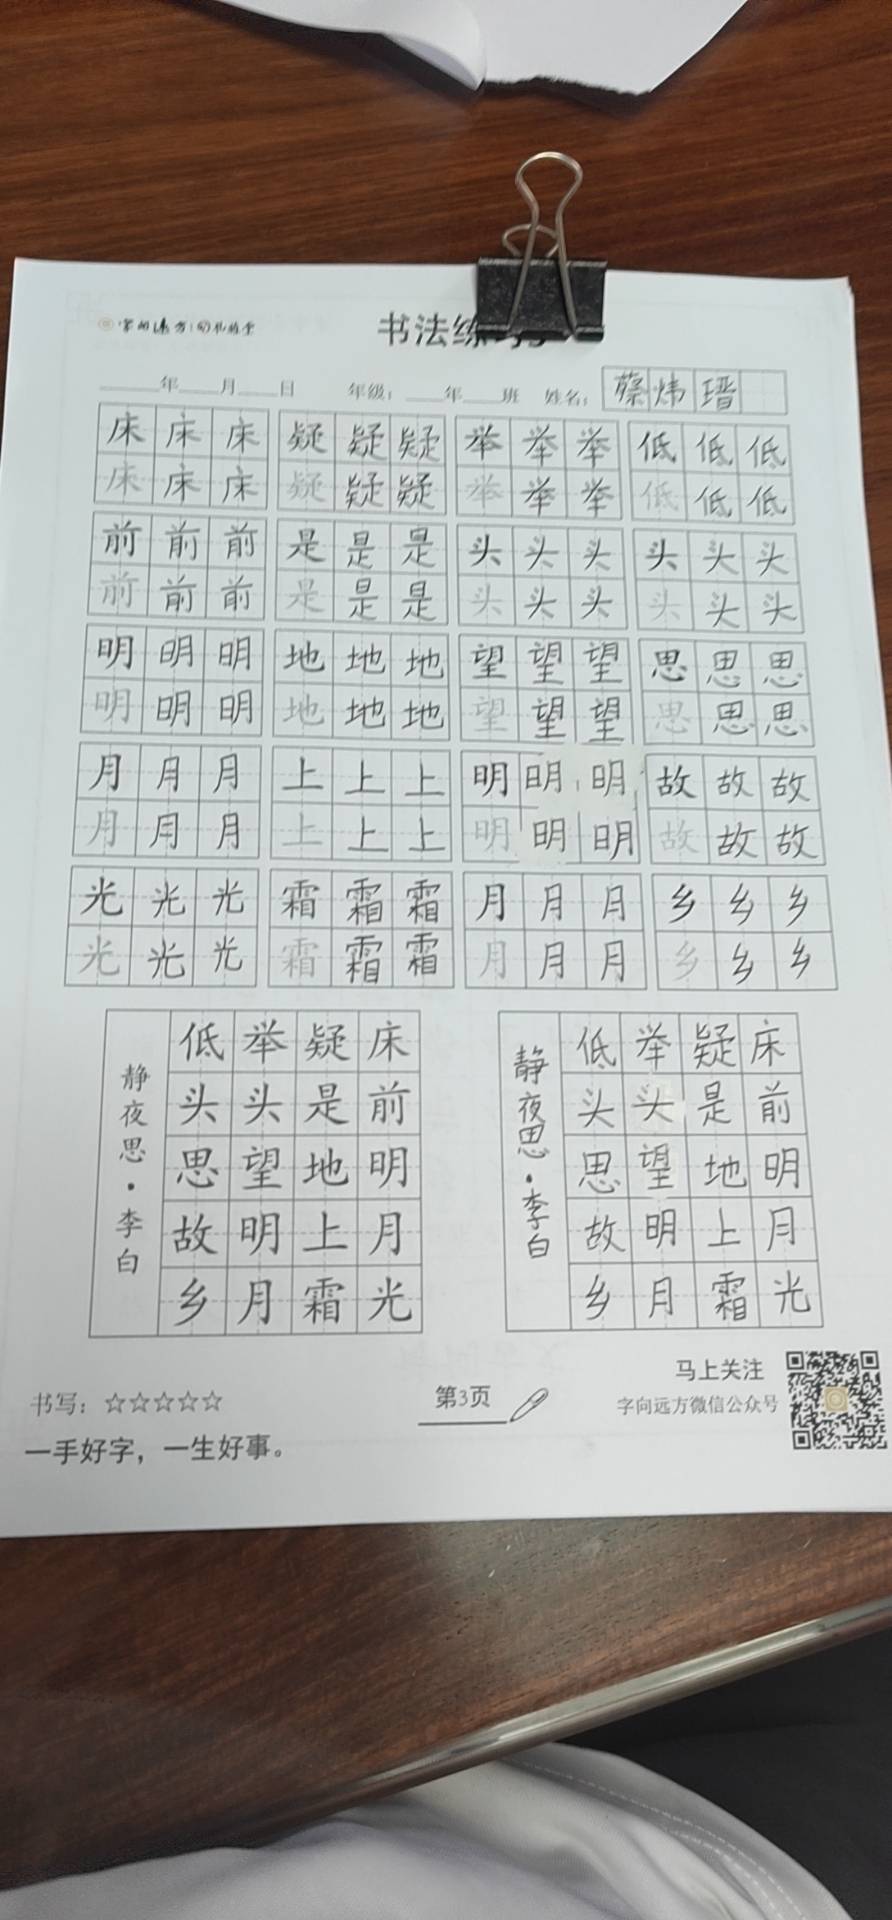 字向远方
书法练习
年 月 日 年级： 年 班 姓名： 蔡炜瑨
床床床 疑疑疑 举举举 低低低
床床床 疑疑疑 举举举 低低低
前前前 是是是 头头头 头头头
前前前 是是是 头头头 头头头
明明明 地地地 望望望 思思思
明明明 地地地 望望望 思思思
月月月 上上上 明明明 故故故
月月月 上上上 明明明 故故故
光光光 霜霜霜 月月月 乡乡乡
光光光 霜霜霜 月月月 乡乡乡
床前明月光
疑是地上霜
举头望明月
低头思故乡
静夜思·李白
床前明月光
疑是地上霜
举头望明月
低头思故乡
静夜思·李白
书写：☆☆☆☆☆
一手好字，一生好事。
第3页
马上关注
字向远方微信公众号